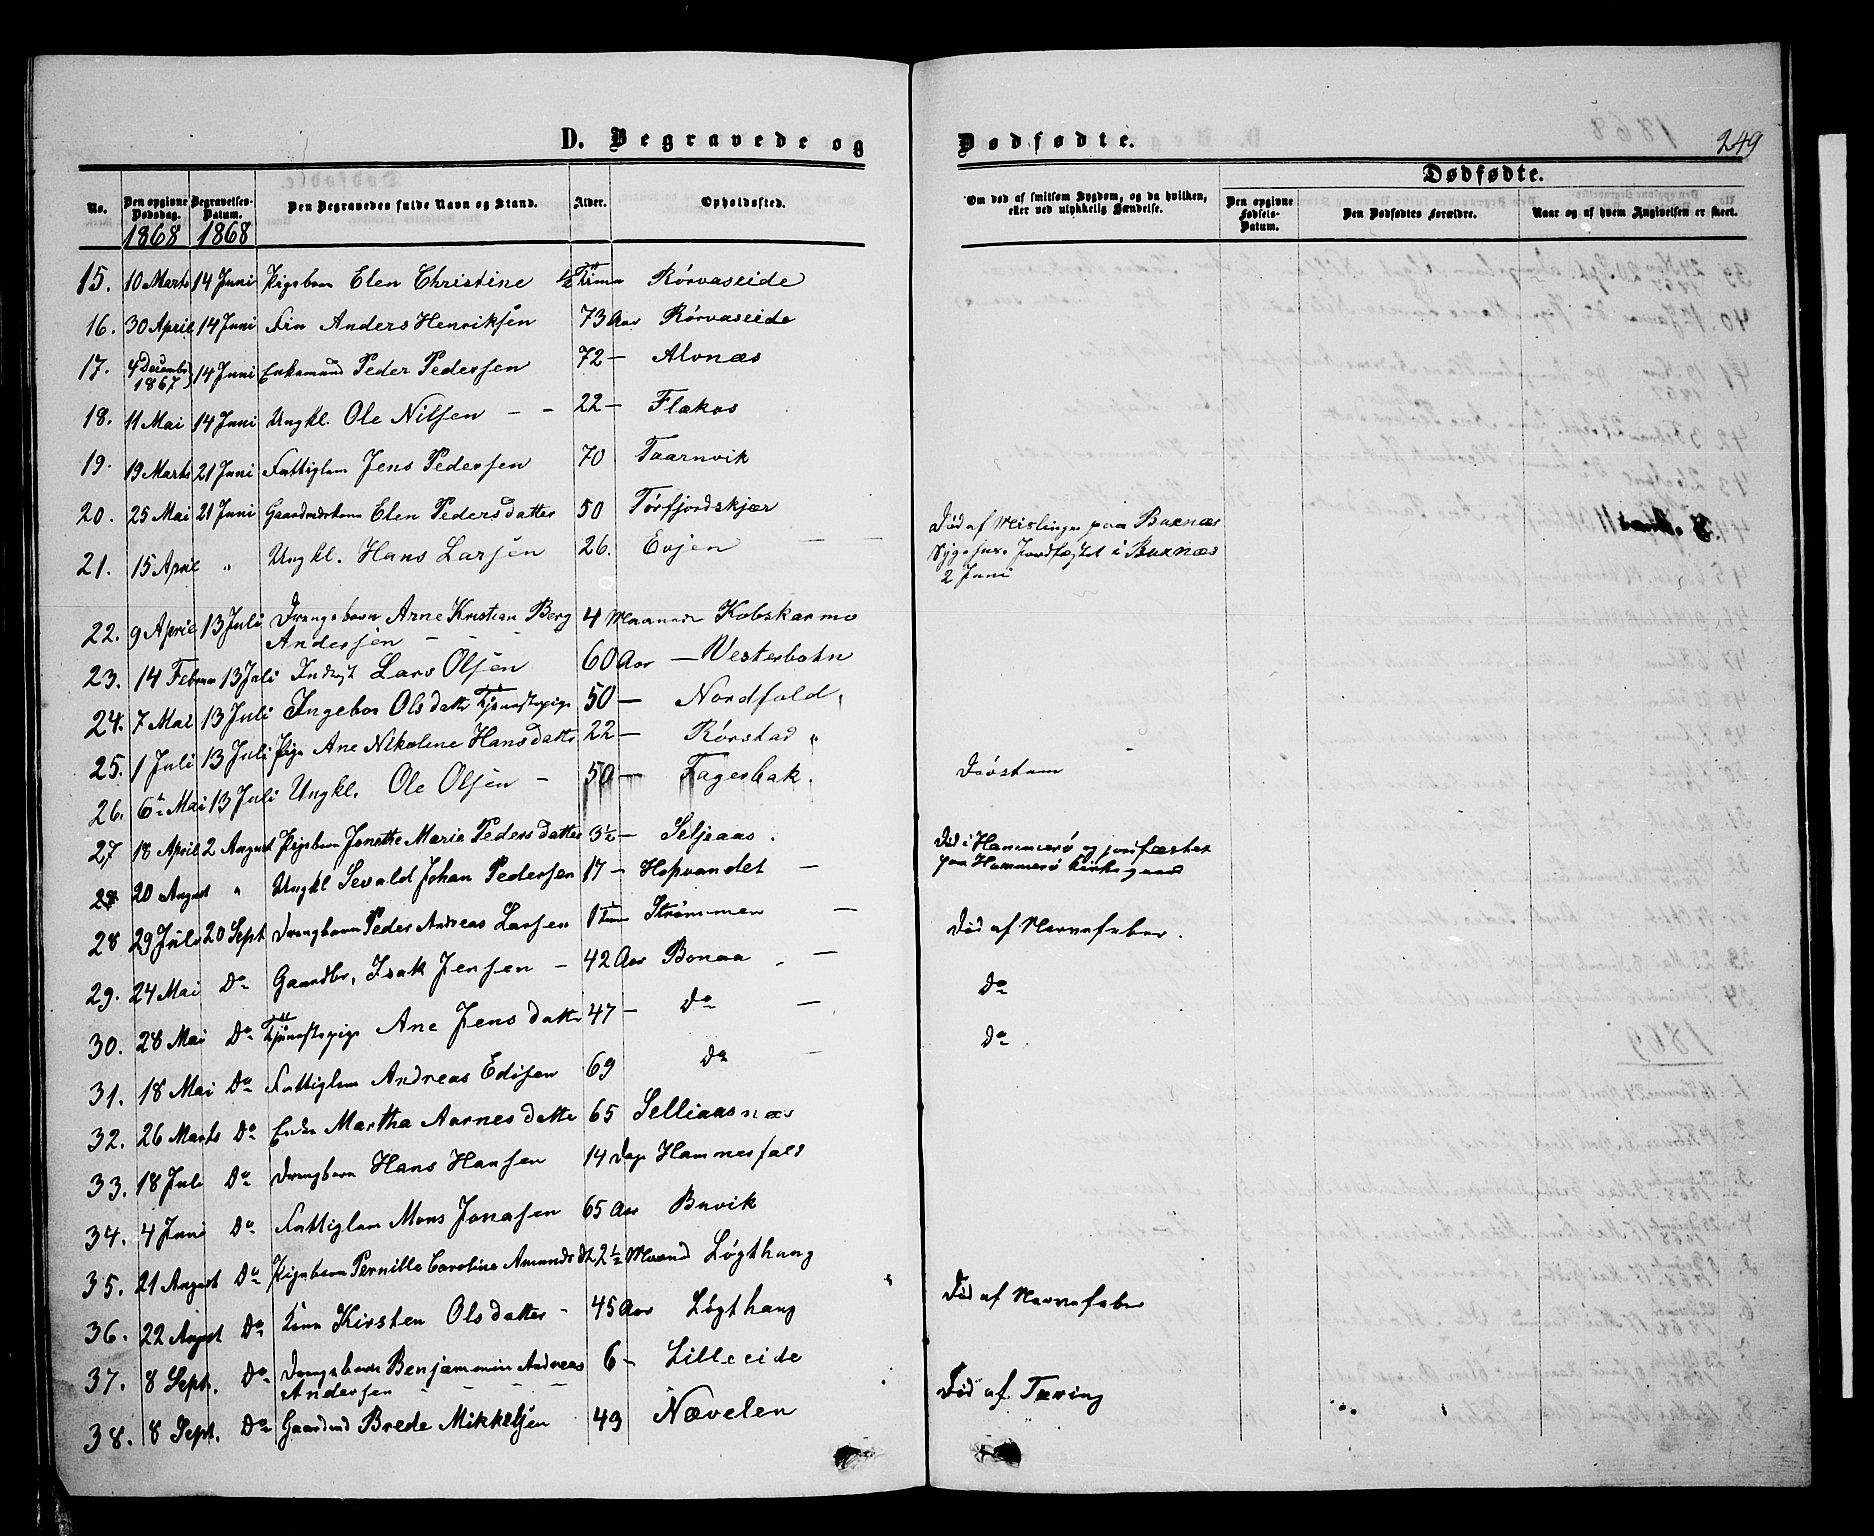 D. Begravede og Dødfødte.
249
Dødfødte.
No. Den opgivne Dødsdag. Begravelses-Datum. Den Begravedes fulde Navn og Stand. Alder. Opholdssted. Om død af smitsom Sygdom, og da hvilken, eller ved ulykkelig Hændelse. Den opgivne Fødsels-Datum. Den Dødfødtes Forældre. Naar og af hvem Angivelsen er skeet.
1868 1868
15. 10 Marts 14 Juni Pigebarn Elen Christine ½ Time Rørvaseide
16. 30 April 14 Juni Fin Anders Henriksen 73 Aar Rørvaseide
17. 4 Decembr 1867 14 Juni Enkemand Peder Pedersen 72 — Alvnæs
18. 11 Mai 14 Juni Ungkl. Ole Nilsen - - 22 — Flakos
19. 19 Marts 21 Juni Fattiglem Jens Pedersen 70 Taarnvik
20. 25 Mai 21 Juni Elen Pedersdatter 50 Tørfjordskjær
21. 15 April " Ungkl. Hans Larsen 26. Evjen — — Død af Meslinger paa Buxnæs
Sygehus. Jordfæstet i Buxnæs
2 Juni
22. 9 April 13 Juli Drengebarn Arne Kristian Berg 4 Maaneder Kobskarmo
Andersen - - -
23. 14 Februar 13 Juli Inderst Lars Olsen 60 Aar — Vesterbotn
24. 7 Mai 13 Juli Ingebor Olsdatter Tjenestepige 50 — Nordfold
25. 1 Juli 13 Juli Pige Ane Nikoline Hansdatter 22 — Rørstad "
26. 6te Mai 13 Juli Ungkl. Ole Olsen - 50 — Fagerbak.
27 18 April 2 August Pigebarn Jonethe Maria Pedersdatter 3½ — Seljeaas. Død i Hammerø og jordfæstet
paa Hammerø Kirkegaard
28 20 August " Ungkl Sevald Johan Pedersen 17 — Hopvandet —
28 29 Juli 20 Sept Drengbarn Peder Andreas Larsen 1 Time Strømmen — Død af Nervefeber.
29. 24 Mai Do Gaardbr. Isak Jensen — 42 Aar Bonaa — Do
30. 28 Mai Do Tjenestepige Ane Jensdatter 47 — Do — Do.
31. 18 Mai Do Fattiglem Andreas Edisen 69 Do —
32. 26 Marts Do Enke Martha Aarnesdatter 65 Selliaasnæs
33. 18 Juli Do Drengbarn Hans Hansen 14 Dage Hamnesfald
34. 4 Juni Do Fattiglem Mons Jonasen 65 Aar Buvik
35. 21 August Do Pigebarn Pernille Caroline Amundsdt 2½ Maaned Løgthaug
36. 22 August Do Kone Kirsten Olsdatter - 45 Aar Løgthaug Død af Nervefeber
37. 8 Sept. Do Drengebarn Benjammin Andreas 6 — Lilleeide
Andersen - - -
38. 8 Sept. Do Gaardmd Brede Mikkelsen 49 Nævelen Død af Tæring